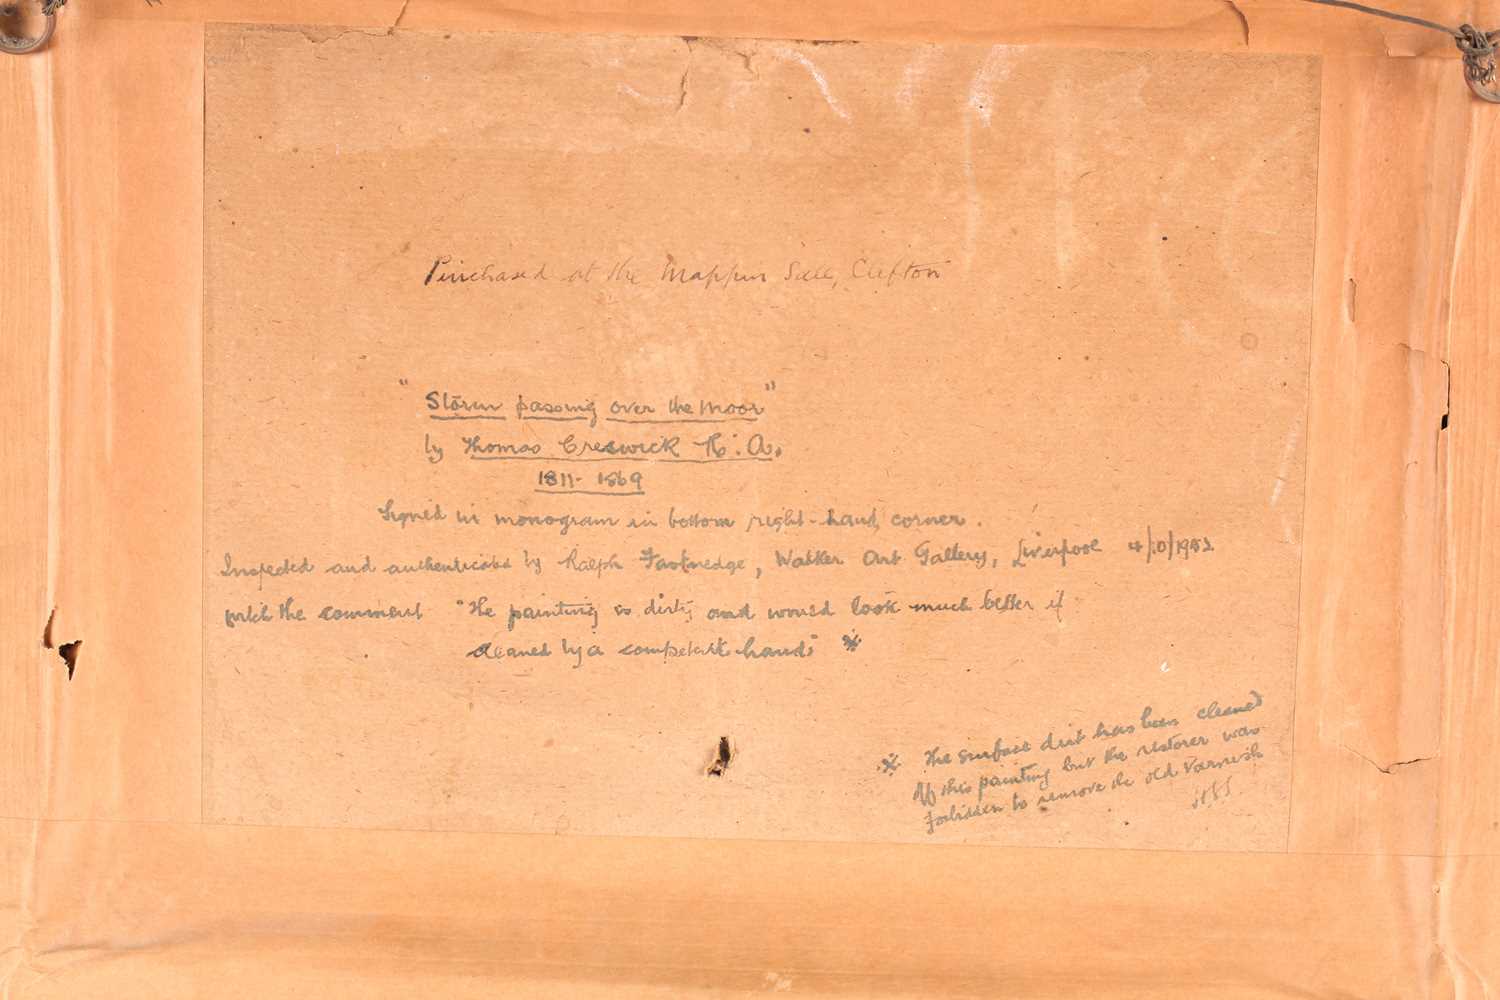 Purchased at the Mappin Sale, Clifton
"Storm passing over the Moor"
by Thomas Creswick R.A.
1811-1869
Signed in monogram in bottom right-hand corner.
Inspected and authenticated by Ralph Fastnedge, Walker Art Gallery, Liverpool 4/10/1952
with the comment "The painting is dirty and would look much better if
cleaned by a competent hand" ※
※ The surface dirt has been cleaned
off this painting but the restorer was
forbidden to remove the old varnish